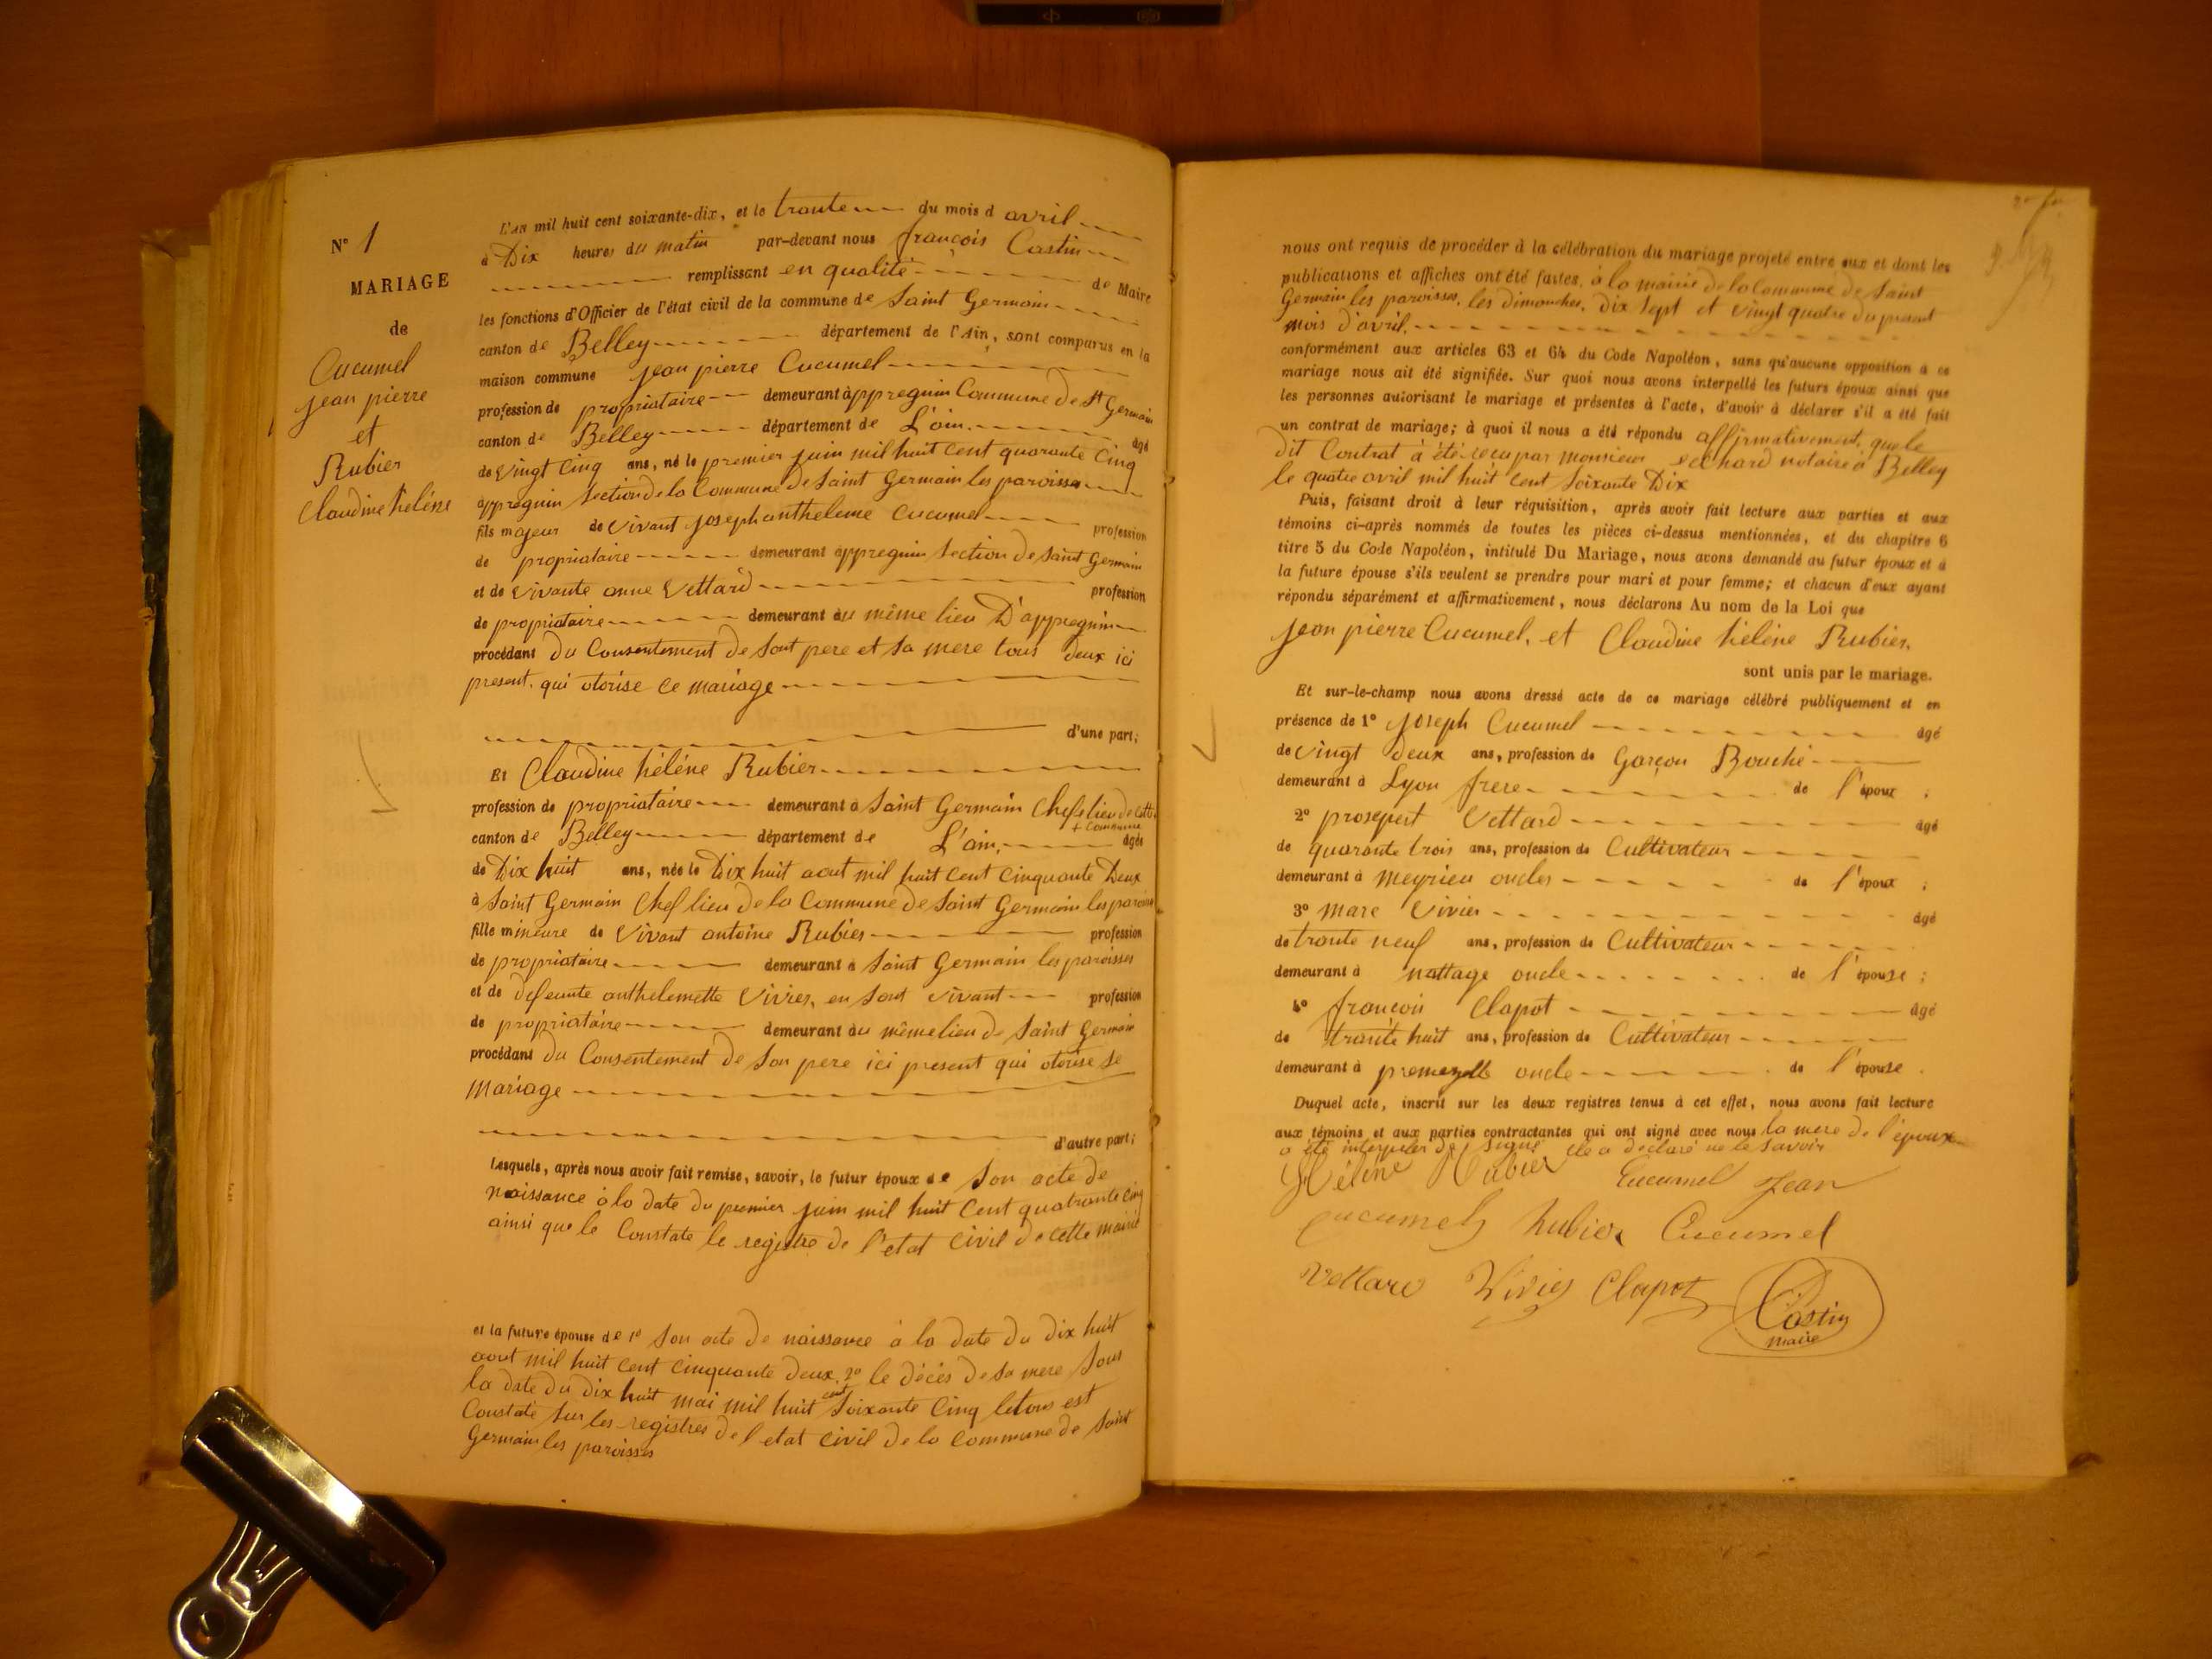 N° 1
MARIAGE
de
Cucumel
jean pierre
et
Rubier
Claudine hélène
L'an mil huit cent soixante-dix, et le trante du mois d avril
à Dix heures du matin par-devant nous françois Castin
remplissant en qualité de Maire
les fonctions d'Officier de l'état civil de la commune de Saint Germain
canton de Belley département de l'Ain, sont comparus en la
maison commune jean pierre Cucumel
profession de propriataire demeurant à appregnin Commune de St Germain
canton de Belley département de L'ain. âgé
de vingt Cinq ans, né le premier juin mil huit cent quarante Cinq
appregnin section de la Commune de saint Germain les paroisses
fils majeur de vivant joseph antheleme Cucumel profession
de propriataire demeurant appregnin section de saint Germain
et de vivante anne Vettard profession
de propriataire demeurant au même lieu D'appregnin
procédant du Consentement de sont pere et sa mere tous deux ici
present. qui otorise ce mariage
d'une part;
Et Claudine hélène Rubier
profession de propriataire demeurant à Saint Germain Chef lieu de cette
+ Commune
canton de Belley département de L'ain, âgée
de Dix huit ans, née le Dix huit aout mil huit cent cinquante Deux
à Saint Germain Chef lieu de la Commune de Saint Germain les paroisses
fille mineure de vivant antoine Rubier profession
de propriataire demeurant à Saint Germain les paroisses
et de defeunte anthelemette Vivier, en sont vivant profession
de propriatàire demeurant au même lieu de Saint Germain
procédant du Consentement de son pere ici present qui otorise se
mariage
d'autre part;
Lesquels, après nous avoir fait remise, savoir, le futur époux de son acte de
naissance à la date du premier juin mil huit cent quatrante cinq
ainsi que le Constate le registre de l'etat civil de cette mairie
et la future épouse de 1° son acte de naissance à la date du dix huit
aout mil huit cent cinquante deux, 2° le décès de sa mere sous
la date du dix huit mai mil huit cent soixante cinq letous est
Constaté sur les registres de l'etat civil de la commune de Saint
Germain les paroisses
nous ont requis de procéder à la célébration du mariage projeté entre eux et dont les
publications et affiches ont été faites, à la mairie de la Commune de Saint
Germain les paroisses, les dimanches, dix sept et vingt quatre du present
mois d'avril
conformément aux articles 63 et 64 du Code Napoléon, sans qu'aucune opposition à ce
mariage nous ait été signifiée. Sur quoi nous avons interpellé les futurs époux ainsi que
les personnes autorisant le mariage et présentes à l'acte, d'avoir à déclarer s'il a été fait
un contrat de mariage; à quoi il nous a été répondu affirmativement, que le
dit Contrat à été reçu par monsieur notaire à Belley
le quatre avril mil huit cent soixante Dix
Puis, faisant droit à leur réquisition, après avoir fait lecture aux parties et aux
témoins ci-après nommés de toutes les pièces ci-dessus mentionnées, et du chapitre 6
titre 5 du Code Napoléon, intitulé Du Mariage, nous avons demandé au futur époux et à
la future épouse s'ils veulent se prendre pour mari et pour femme; et chacun d'eux ayant
répondu séparément et affirmativement, nous déclarons Au nom de la Loi que
jean pierre Cucumel, et Claudine hélène Rubier,
sont unis par le mariage.
Et sur-le-champ nous avons dressé acte de ce mariage célébré publiquement et en
présence de 1° joseph Cucumel âgé
de vingt deux ans, profession de Garçon Bouché
demeurant à Lyon frere de l'époux ;
2° prosepert Vettard âgé
de quarante trois ans, profession de Cultivateur
demeurant à meyrieu oncles de l'époux ;
3° marc Vivier âgé
de trante neuf ans, profession de Cultivateur
demeurant à nattage oncle de l'épouse ;
4° françois Clapot âgé
de trante huit ans, profession de Cultivateur
demeurant à premeyzelle oncle de l'épouse.
Duquel acte, inscrit sur les deux registres tenus à cet effet, nous avons fait lecture
aux témoins et aux parties contractantes qui ont signé avec nous la mere de l'époux
a été interpeler de signé elle a declaré ne le savoir
Hélène Rubier Cucumel Jean
Cucumel Rubier Cucumel
Vettard Vivier Clapot Castin
maire